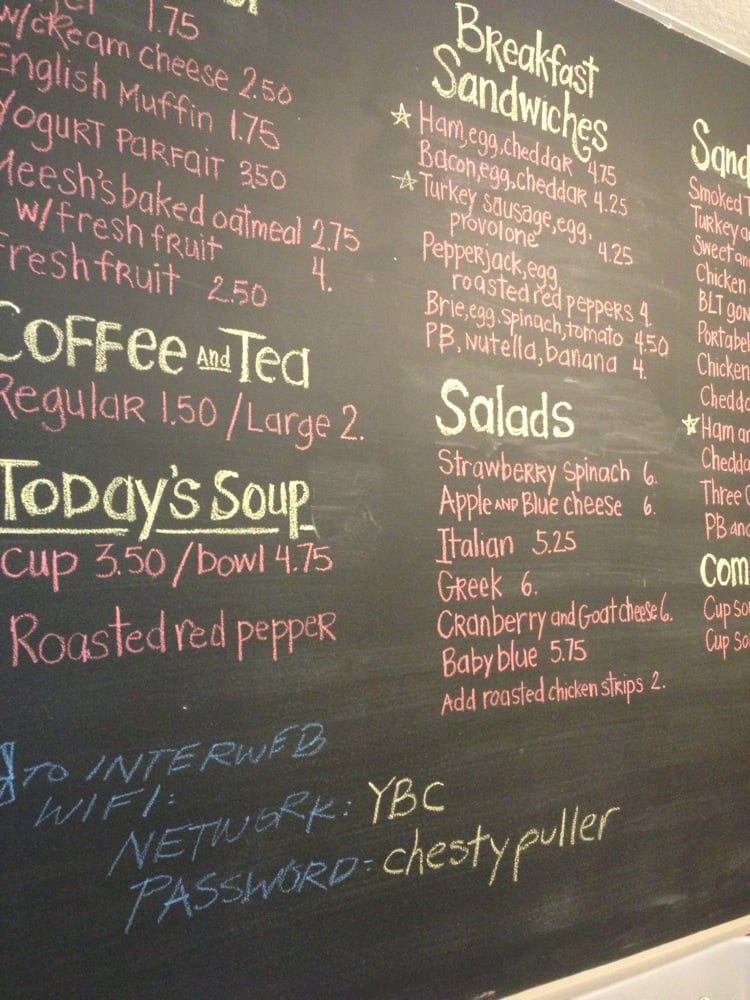 1.75
w/cream cheese 2.50
English Muffin 1.75
Yogurt Parfait 3.50
Meesh's baked oatmeal 2.75
w/fresh fruit 4.
Fresh fruit 2.50
Coffee and Tea
Regular 1.50 / Large 2.
Today's Soup
Cup 3.50 / bowl 4.75
Roasted red pepper
TO INTERWEB
WIFI:
NETWORK: YBC
PASSWORD: chestypuller
Breakfast
Sandwiches
Ham, egg, cheddar 4.75
Bacon, egg, cheddar 4.25
Turkey sausage, egg,
provolone 4.25
Pepperjack, egg
roasted red peppers 4.
Brie, egg, spinach, tomato 4.50
PB, Nutella, banana 4.
Salads
Strawberry Spinach 6.
Apple and Blue cheese 6.
Italian 5.25
Greek 6.
Cranberry and Goat cheese 6.
Baby blue 5.75
Add roasted chicken strips 2.
Sand
Smoked T
Turkey a
Sweet an
Chicken
BLT gon
Portabel
Chicken
Chedda
Ham an
Chedda
Three
PB and
Com
Cup so
Cup so